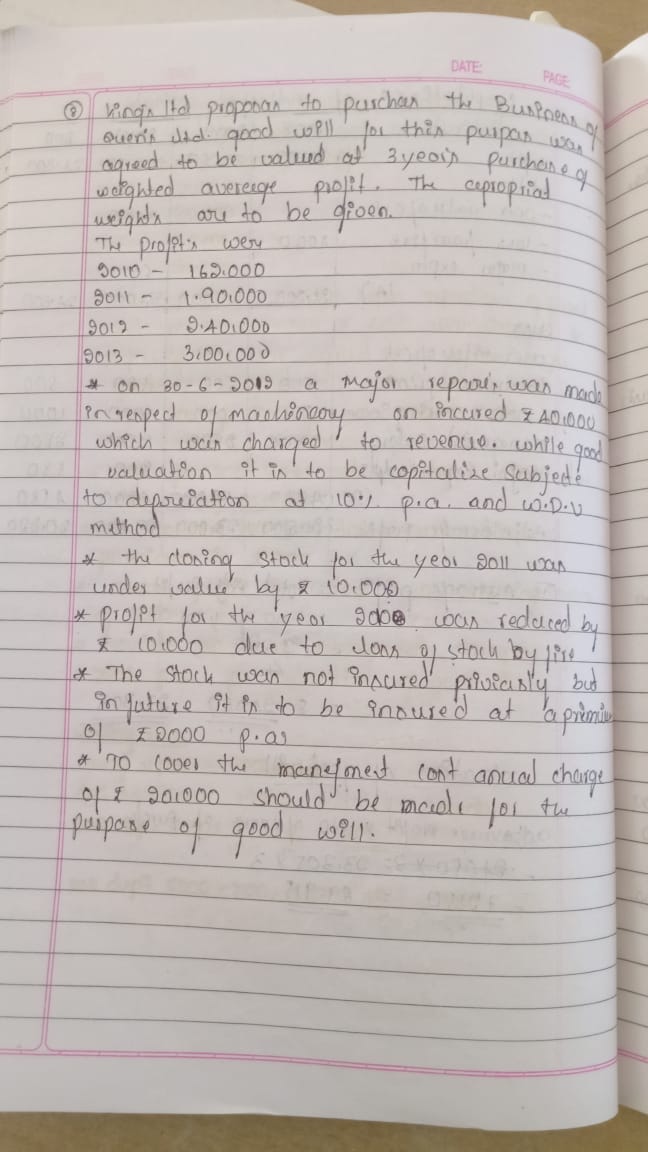 DATE:
PAGE
⑧ king's ltd proposan to purchan the Business of
queen's Ltd. good will for this purpas was
agreed to be valued at 3 year's purchase of
weighted avereage profit. The apropriat
weights are to be given.
The profit's were
2010 - 162.000
2011 - 1.90.000
2012 - 2.40.000
2013 - 3.00.000
* on 30-6-2012 a major repair's was made
in respect of machineary on incured ₹ 40.000
which was charged to revenue. while good
valuation it is to be capitalize Subjede
to depreciation at 10% p.a. and W.D.V
mathod
* the closing stock for the year 2011 was
under value by ₹ 10.000
* profit for the year was reduced by
₹ 10.000 due to loss of stock by fire
* The stock was not insured priviasly but
in future it is to be insured at a premiu
of ₹ 2000 p.as
* To cover the manejment cost anual charge
of ₹ 20.000 should be made for the
purpase of good will.